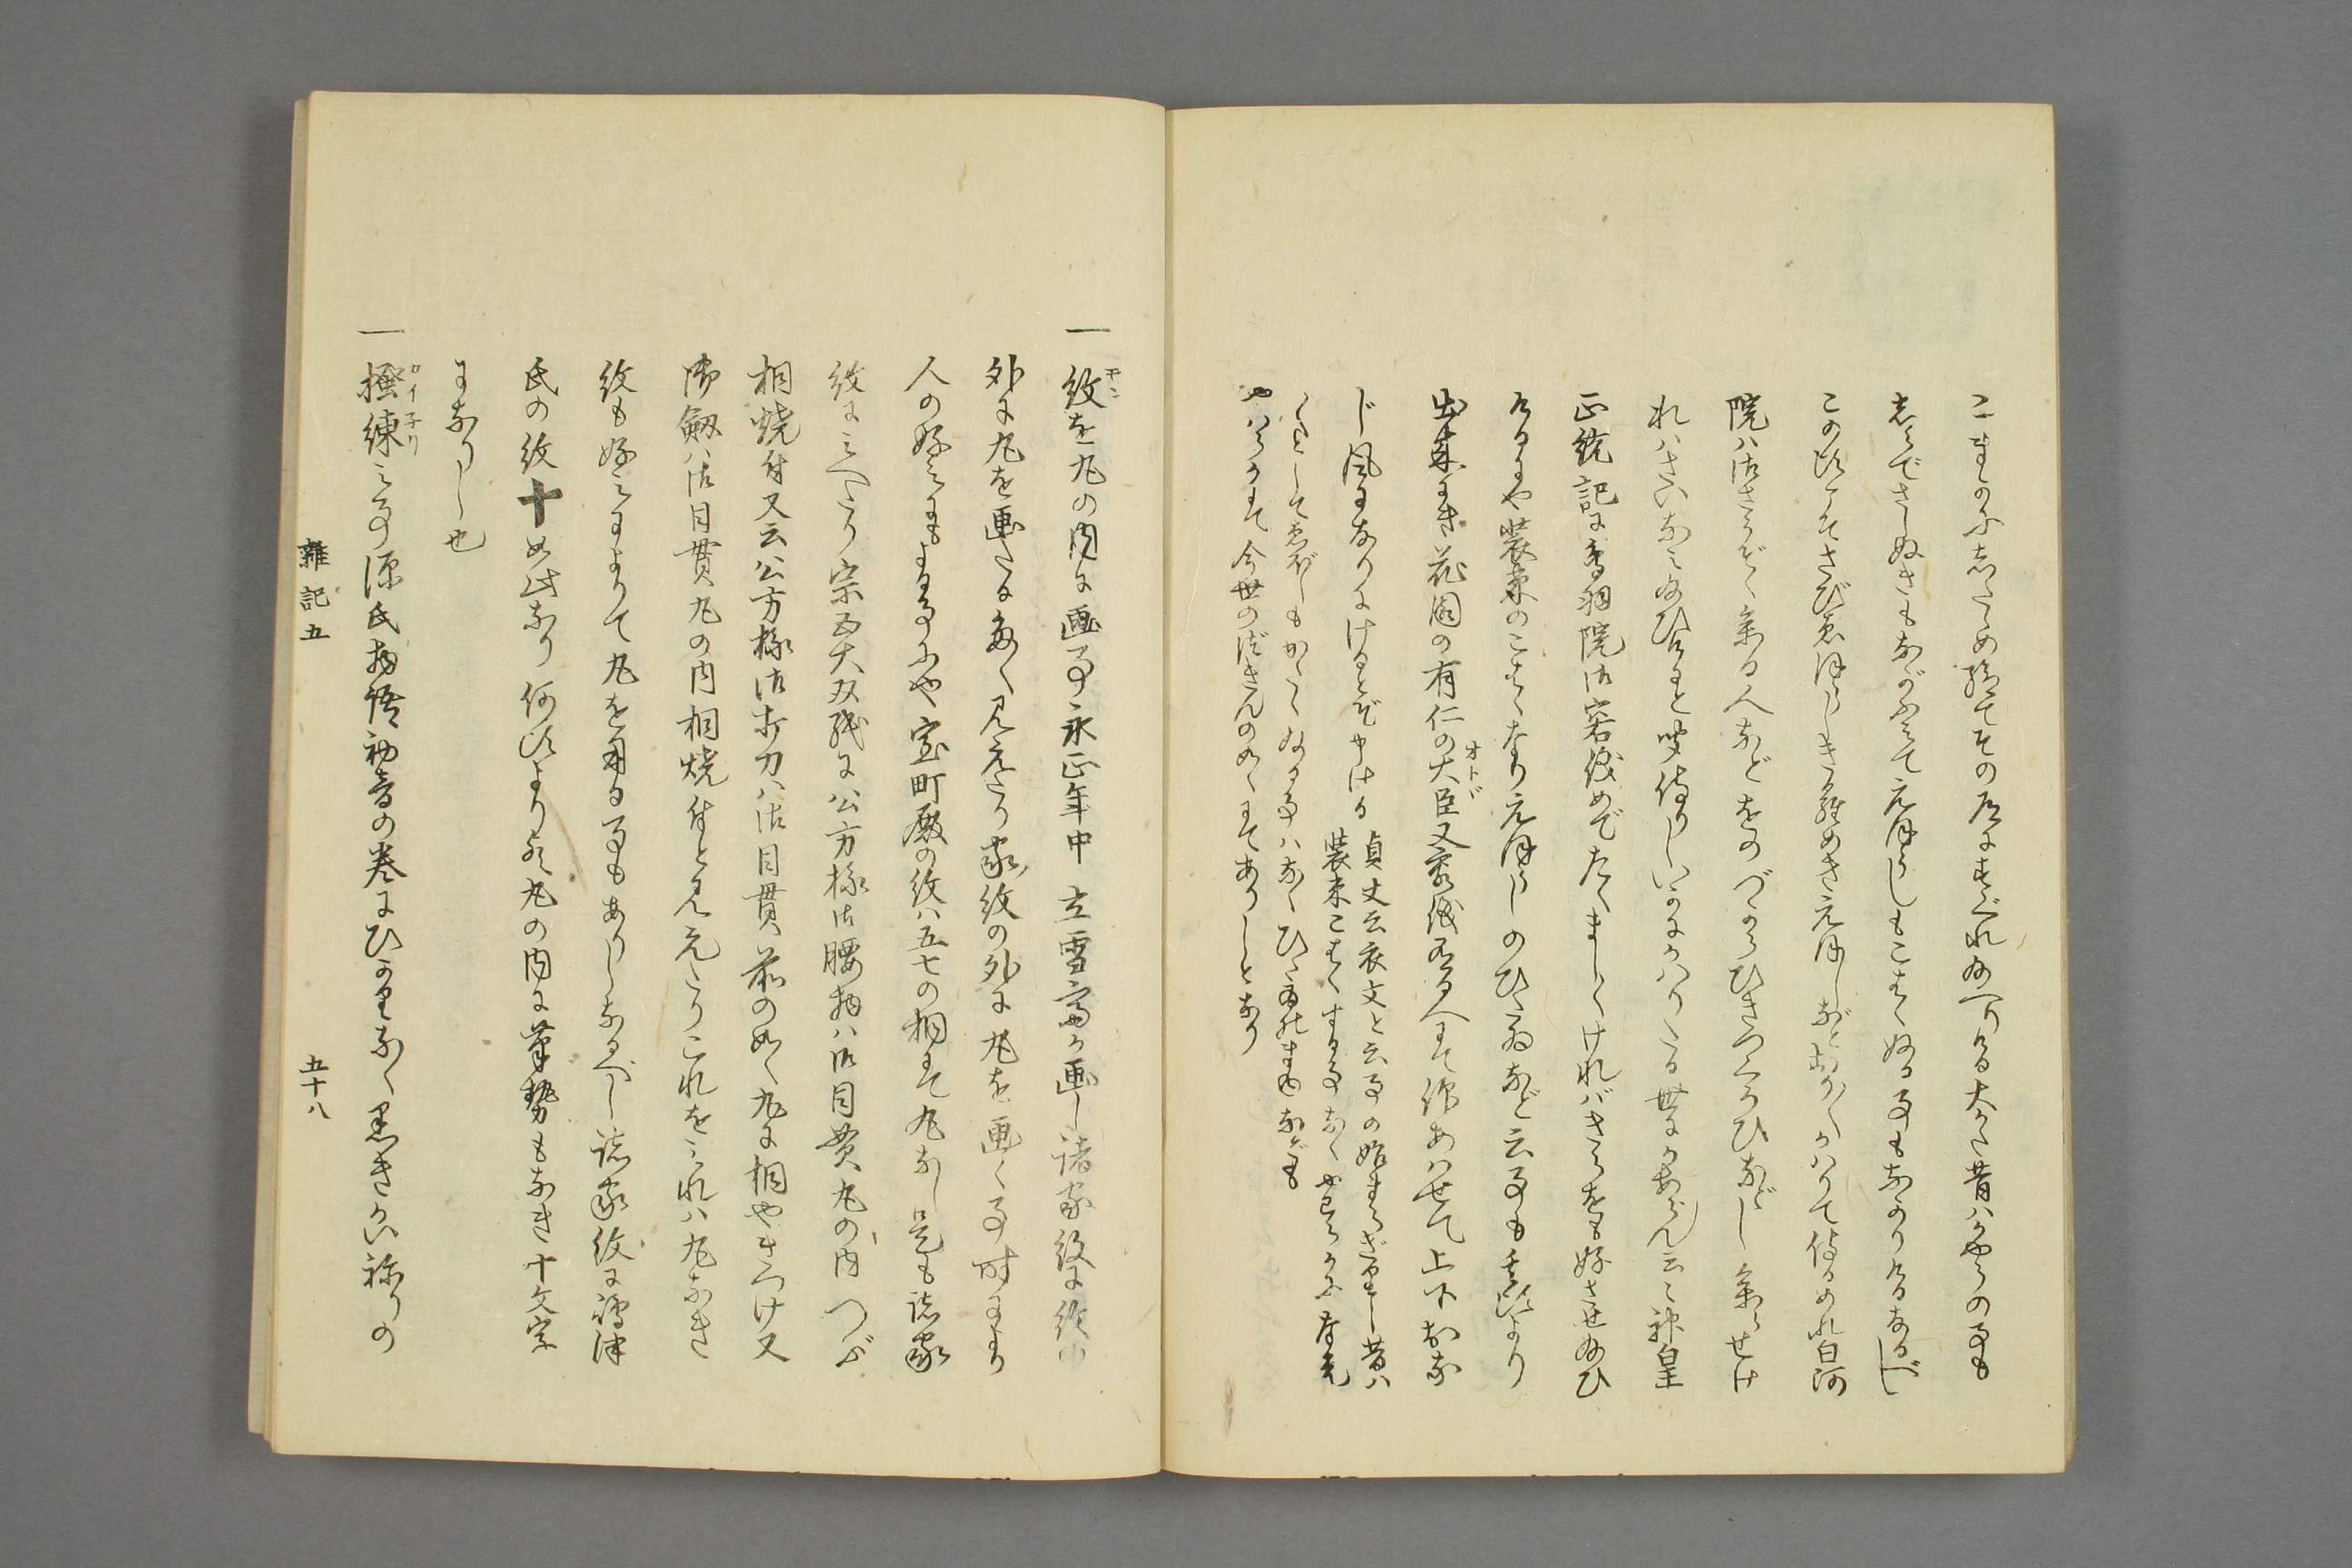 こまのふしためぬてその道にすぐれ給へりける大かた昔ハかやうの事も
しらでさしぬきもながふみて元ほうしもこはくぬる事もなかりけるなるべし
この比こそさびゑほうしきらめきゑほしなどおりおりかハりて侍るめれ白河
院ハ御さうぞく参る人などをのづからひきつくろひなどし参らせけ
れハさいなみ給ひけると聞侍りしいかにかハりたる世にかあらん云々神皇
正統記に鳥羽院御容儀めでたくましましけれバきらをも好ませ給ひ
けるにや装束のこはくなり元ほうしのひたゐなど云事も其比より
出来にき花園の有仁の大臣又容儀ある人にて仰あハせて上下おな
じ風になりにけるとぞ申ける
貞丈云衣文と云事の始まらざりし昔ハ
装束こはくする事なくやはらかに着て
ゑぼしもかたくぬる事ハなく
やハらかにて今世のづきんの如くにてありしとなり
一紋を丸の内に画事永正年中立雪斎が画し諸家紋に紋の
外に丸を画たる多く見えたり家紋の外に丸を画く事時により
人の好みにもよる事にや室町殿の紋ハ五七の桐にて丸なし是も諸家
紋にみへたり宗五大双紙に公方様御腰物ハ御目貫丸の内つぶ
桐焼付又云公方様御打刀ハ御目貫前の如く丸に桐やきつけ又
御劔ハ御目貫丸の内桐焼付と見えたりこれをみれハ丸なき
紋も好みによりて丸を用る事もありしなるべし諸家紋に嶋津
氏の紋十如此なり何比よりか丸の内に筆勢もなき十文字
になりし也
一掻練之事源氏物語初音の巻にひかりもなく黒きかいねりの
雑記五
五十八